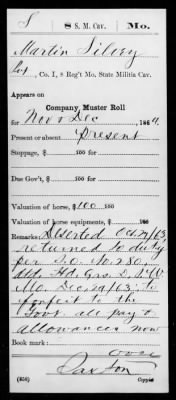 S | 8 S. M. Cav. | Mo.
Martin Silvey
Co. I, 8 Reg't Mo. State Militia Cav.
Appears on
Company Muster Roll
for Nov & Dec, 1864.
Present or absent Present
Stoppage, $ 100 for
Due Gov't, $ 100 for
Valuation of horse, $100 100
Valuation of horse equipments, $ 100
Remarks: Deserted Oct 27/63
returned to duty
per S.O. No. 280
Hd. Qrs.
Mo. Dec. 29/63; to
forfeit to the
Govt. all pay &
allowances now
Book mark:
over
Paxton
(858) Copyist.